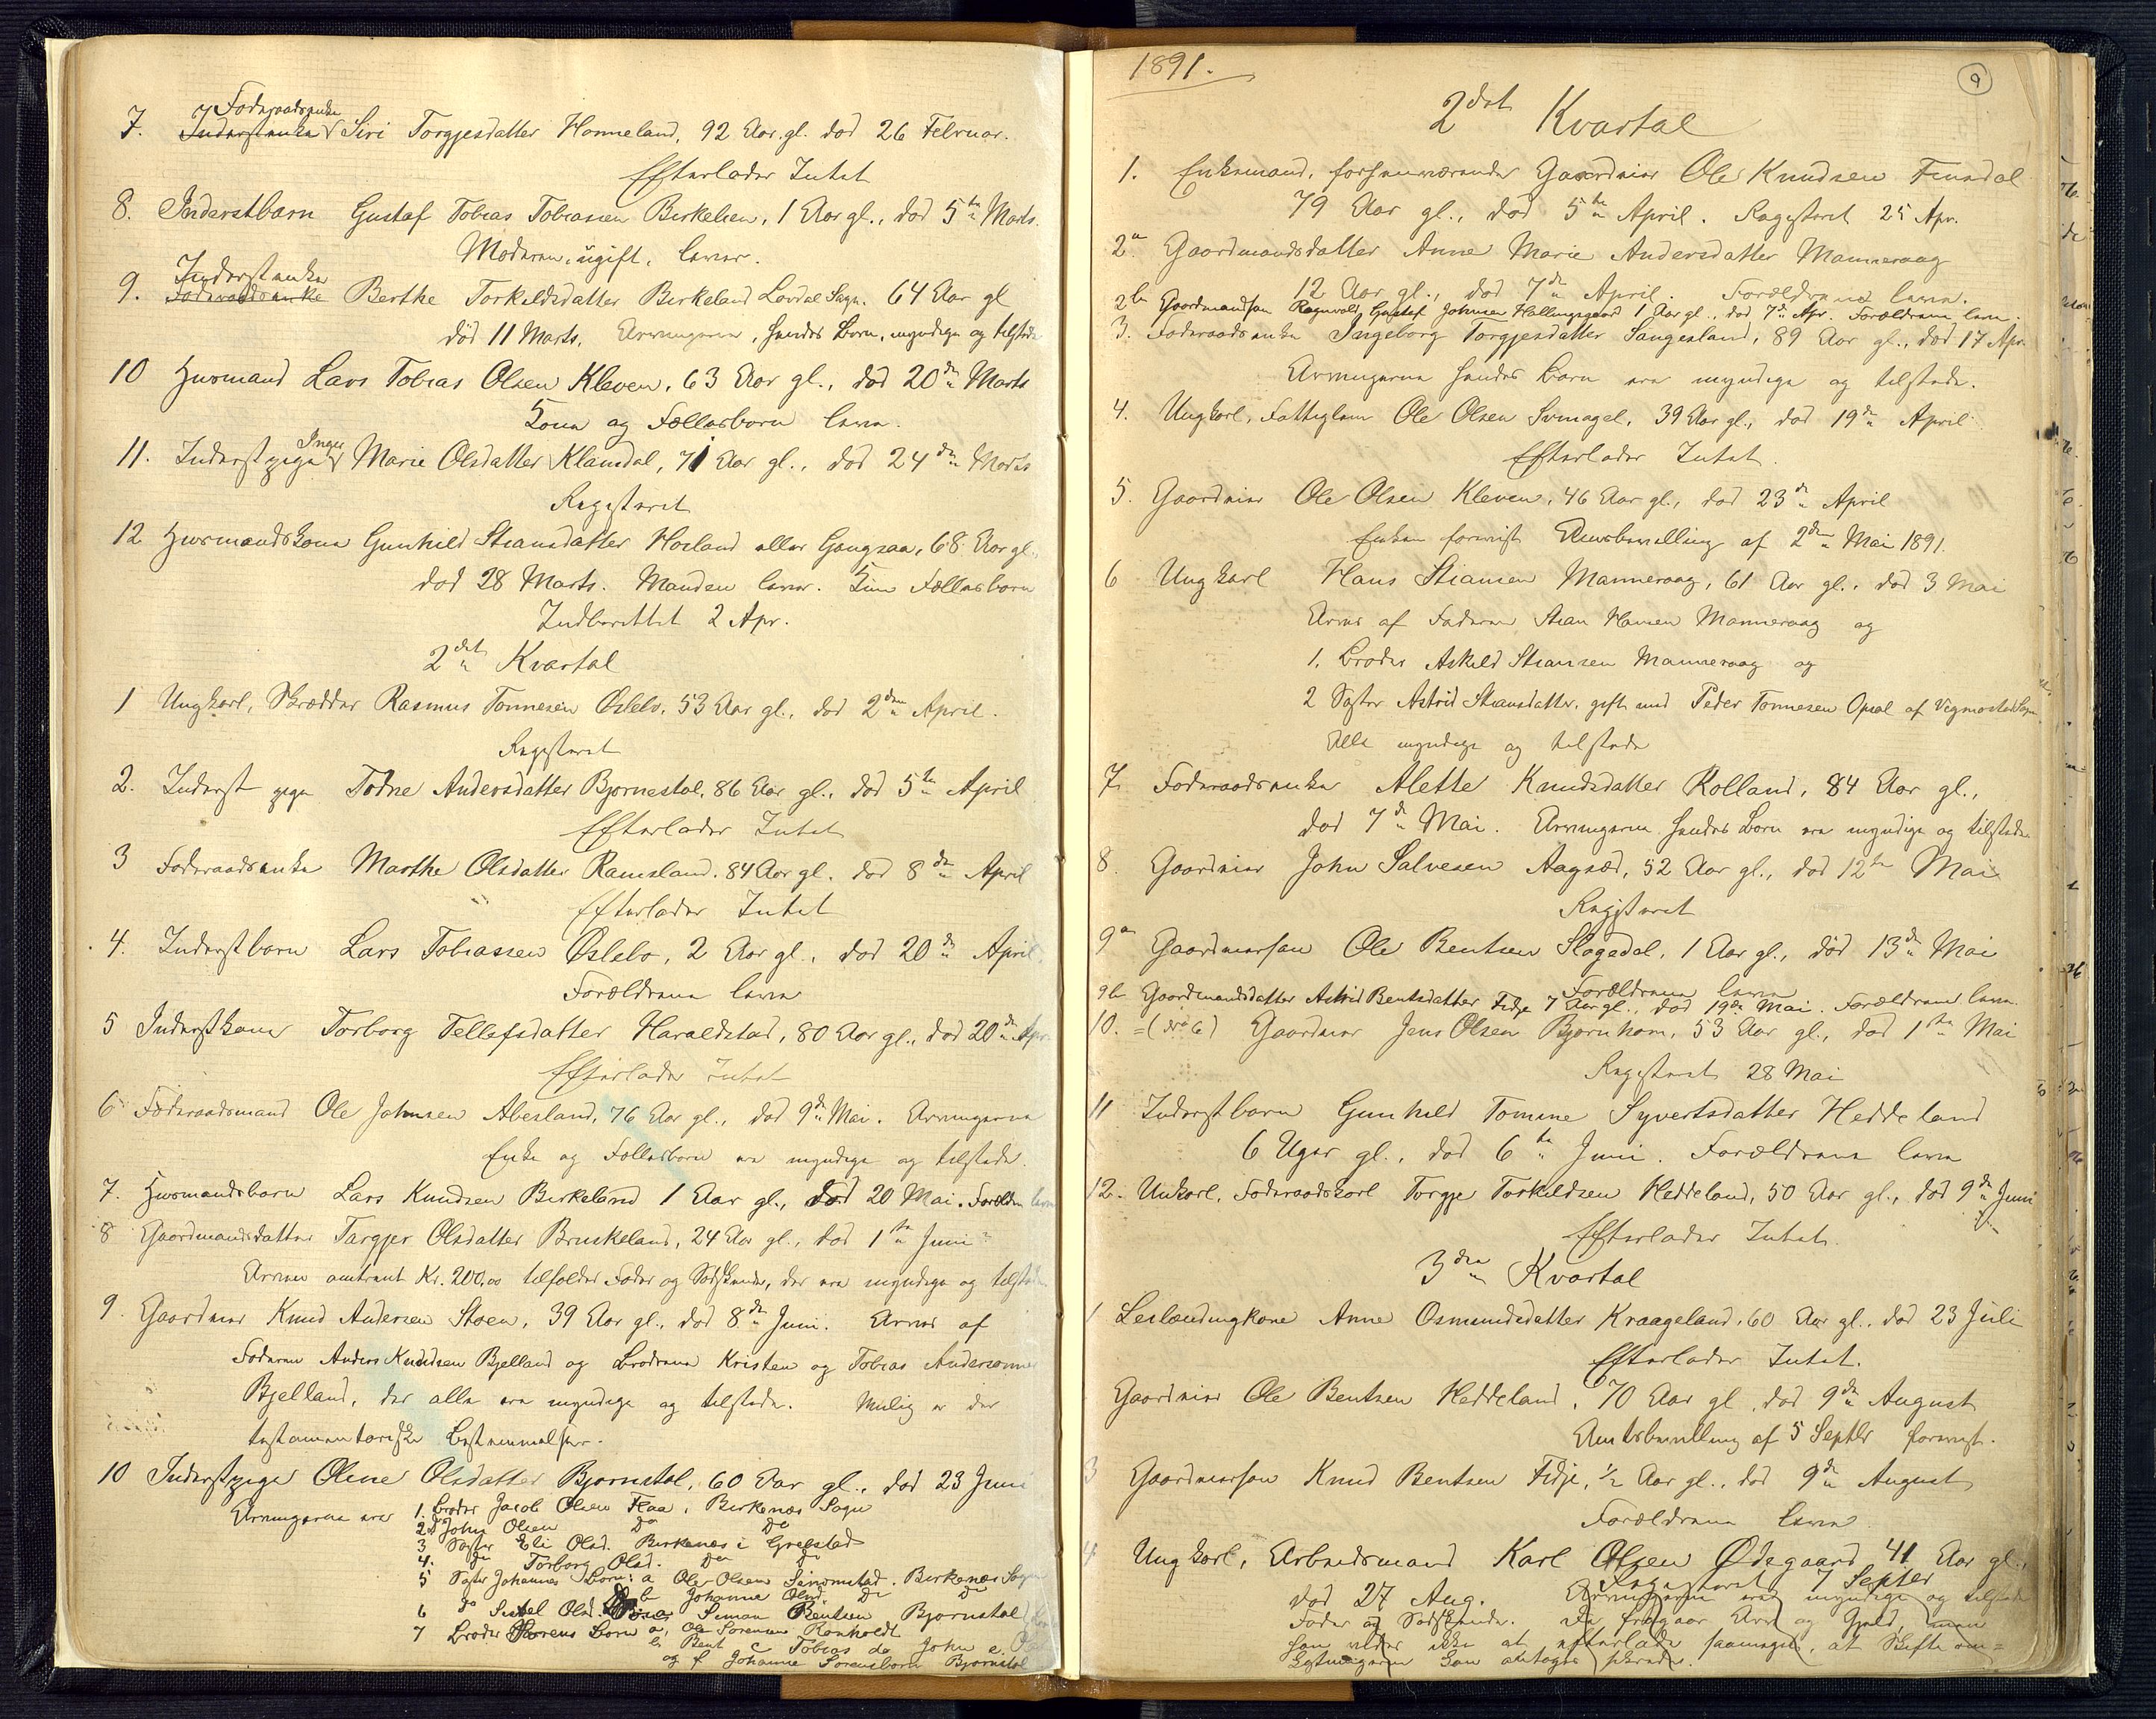 7. Foderaadsenke Inderstenke Siri Torgjesdatter Honneland, 92 Aar gl. död 26 Februar.
Efterlader Intet
8. Inderstbarn Gustaf Tobias Tobiasen Birkelien, 1 Aar gl., död 5te Marts.
Moderen, ugift, lever.
9. Inderstenke Foderaadsenke Berthe Torkildsdatter Birkeland Lovdal Sogn. 64 Aar gl
död 11 Marts. Arvingerne, hendes Börn, myndige og tilstede
10 Husmand Lars Tobias Olsen Kleven, 63 Aar gl., död 20de Marts
Kone og Fællesbørn lever.
11. Inderstpige Inger Marie Olsdatter Klamdal, 71 Aar gl., död 24de Marts
Registeret
12 Husmandskone Gunhild Stiansdatter Horland eller Gangsaa, 68 Aar gl.
död 28 Marts. Manden lever. Kun Fællesbørn
Indberettet 2 Apr.
2det Kvartal
1 Ungkarl, Skrædder Rasmus Tönnesen Øslebø, 53 Aar gl., död 2den April.
Registeret
2. Inderst pige Todne Andersdatter Bjørnestøl, 86 Aar gl., död 5te April
Efterlader Intet
3 Foderaadsenke Marthe Olsdatter Ramsland, 84 Aar gl. död 8de April
Efterlader Intet
4. Inderstbarn Lars Tobiassen Øslebø, 2 Aar gl., död 20de April.
Forældrene lever
5 Inderstkone Torborg Tellefsdatter Haraldstad, 80 Aar gl., död 20de Apr.
Efterlader Intet
6 Föderaadsmand Ole Johnsen Abesland, 76 Aar gl., död 9de Mai. Arvingerne
Enke og Fællesbørn ere myndige og tilstede.
7. Husmandsbarn Lars Knudsen Birkeland 1 Aar gl., död 20 Mai. Forældre lever
8 Gaardmandsdatter Targjer Olsdatter Bruskeland, 24 Aar gl., död 1ste Juni
Arven omtrent Kr. 200,00 tilfalder Fader og Sødskende, der ere myndige og tilstede
9. Gaardeier Knud Andersen Stoen, 39 Aar gl., död 8de Juni. Arves af
Faderen Anders Knudsen Bjelland og Brødrene Kristen og Tobias Anderssønner
Bjelland, der alle ere myndige og tilstede. Mulig er der
testamentariske Bestemmelser.
10 Inderstpige Oline Olsdatter Bjørnstøl, 60 Aar gl., död 23 Juni
Arvingerne ere 1. Broder Jacob Olsen Flaa, Birkenæs Sogn
2 Do John Olsen Do Do
3 Søster Eli Olsd. Birkenæs i Greestad
4. do Torborg Olsd. Do Do
5 Søster Johannes Børn: a Ole Olsen Senomstad. Birkenæs Sogn
b Johanne Olsd. Do Do
6 do Sissel Olsd. Börn Simon Bentsen Bjørnstøl
7 Broder Sørens Børn a, Ole Sørensen Ronholdt
b Bent c Tobias d John e
og f Johanne Sørensbørn Bjørnstøl
1891. 9
2det Kvartal
1. Enkemand, forhenværende Gaardeier Ole Knudsen Finsdal
79 Aar gl., död 5te April. Registeret 25 Apr.
2a Gaardmandsdatter Anne Marie Andersdatter Manneraag
12 Aar gl., död 7de April. Forældrene lever.
2b Gaardmandsøn Ragnvald Gustaf Johnsen Hellingsgaard 1 Aar gl., död 7de Apr. Forældrene lever.
3. Foderaadsenke Ingeborg Torgjesdatter Sangesland, 89 Aar gl., död 17 Apr.
Arvingerne hendes Børn ere myndige og tilstede.
4. Ungkarl, Fattiglem Ole Olsen Svinagel, 39 Aar gl., död 19de April
Efterlader Intet.
5. Gaardeier Ole Olsen Kleven, 46 Aar gl., död 23de April
Enken forevist Amtsbevilling af 2den Mai 1891.
6 Ungkarl Hans Stiansen Manneraag, 61 Aar gl., död 3 Mai
Arves af Faderen Stian Hansen Manneraag og
1. Broder Askild Stiansen Manneraag og
2 Søster Astrid Stiansdatter, gift med Peder Tønnesen Opsal af Vegmostad Sogn
Alle myndige og tilstede
7. Foderaadsenke Alette Knudsdatter Rolland, 84 Aar gl.,
död 7de Mai. Arvingerne hendes Børn ere myndige og tilstede
8. Gaardeier John Salvesen Aagsæd, 52 Aar gl., död 12te Mai
Registeret
9a Gaardeiersøn Ole Bentsen Slogedal, 1 Aar gl., död 13de Mai
Forældrene lever
9b Gaardmandsdatter Astrid Bentsdatter Fidje 7 Aar gl., död 19de Mai. Forældrene lever.
10. = Gaardeier Jens Olsen Bjørnhom, 53 Aar gl., död 1ste Mai
Registeret 28 Mai
11 Inderstbarn Gunhild Tomine Syvertsdatter Heddeland
6 Uger gl., död 6te Juni. Forældrene lever
12. Unkarl, Foderaadskarl Torgje Torkildsen Heddeland, 50 Aar gl., död 9de Juni
Efterlader Intet.
3die Kvartal
1 Leilændingkone Anne Osmundsdatter Kraageland, 60 Aar gl., död 23 Juli
Efterlader Intet.
Gaardeier Ole Bentsen Heddeland, 70 Aar gl, död 9de August
Amtsbevilling af 5 Septbr forevist.
3 Gaardeiersøn Knud Bentsen Fidje, 1/2 Aar gl., död 9de August
Forældrene lever
4 Ungkarl, Arbeidsmand Karl Olsen Ødegaard 41 Aar gl.,
Registeret 7 Septer
död 27 Aug. Arvingerne ere myndige og tilstede
Fader og Sødskende. De fragaar Arv og Gjæld, men
han